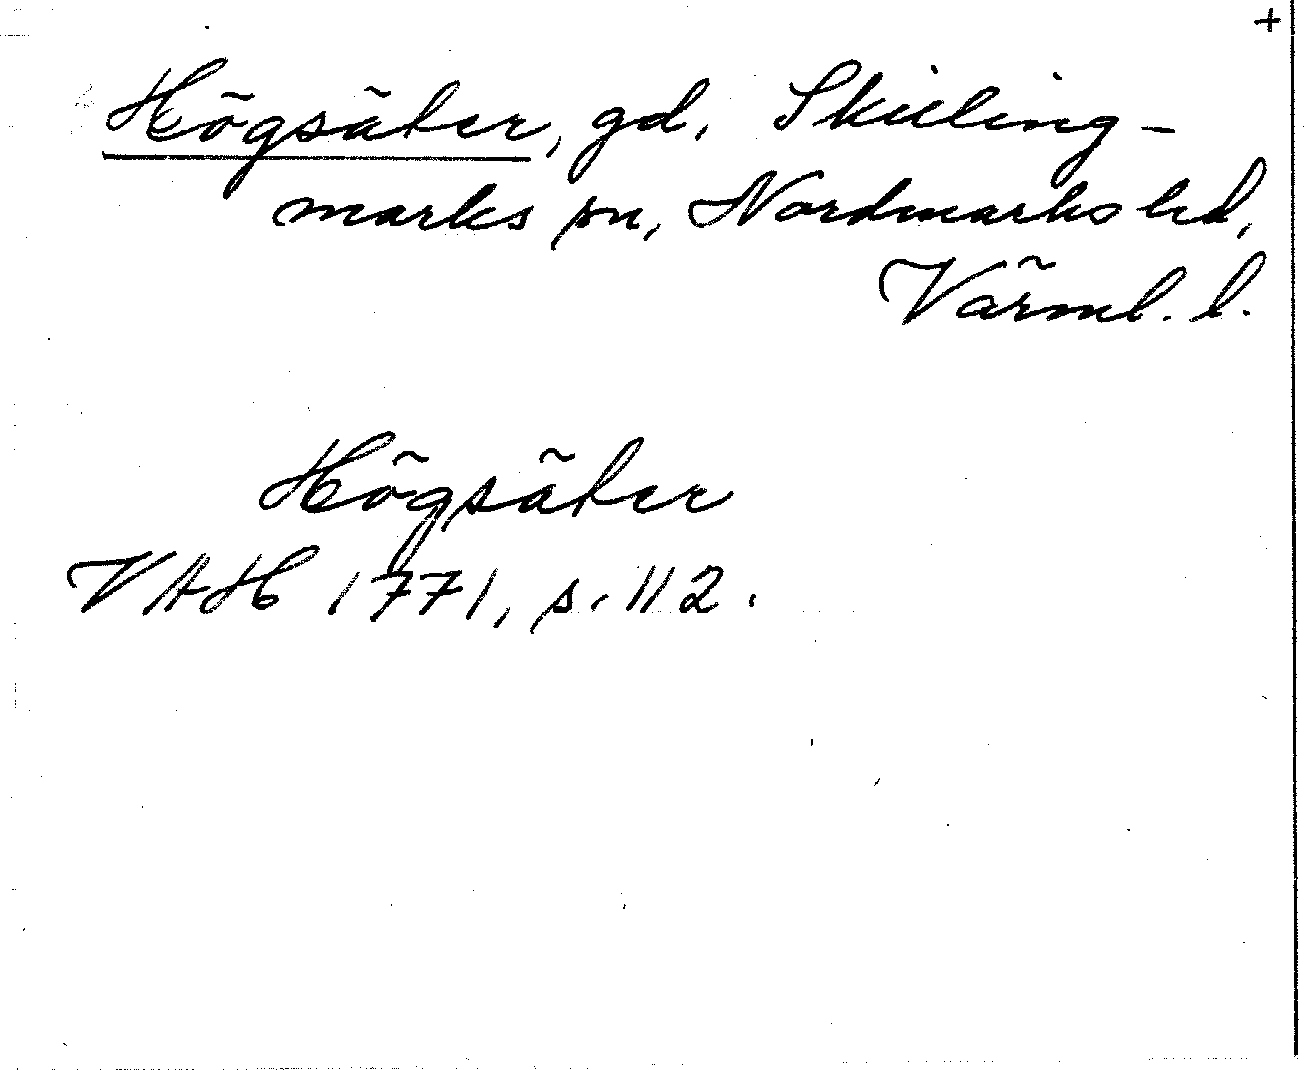 +
Högsäter, gd, Skilling-
marks sn, Nordmarks hd,
Värml. l.
Högsäter
VAH 1771, s. 112.